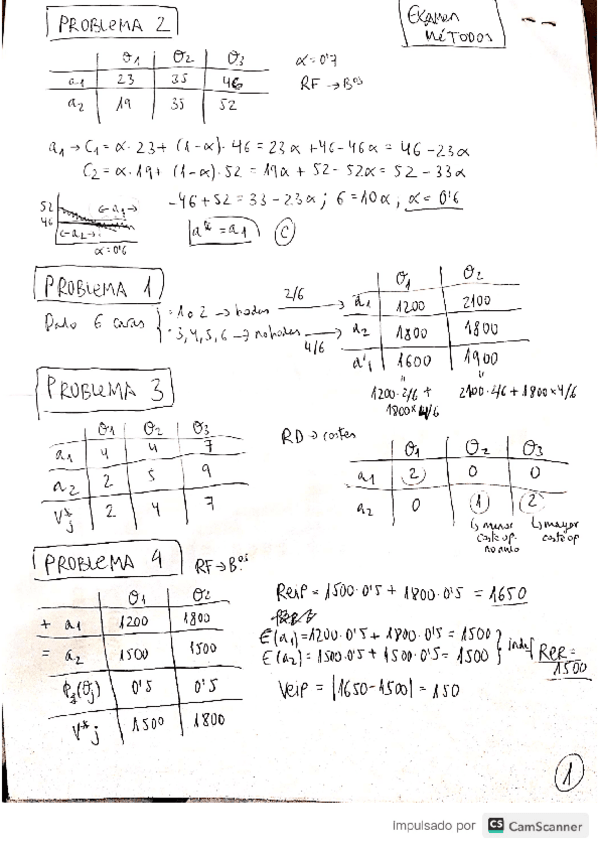 PROBLEMA 2
EXAMEN
MÉTODOS
θ1 θ2 θ3
a1 23 35 46
a2 19 35 52
α = 0'7
RF → Bos
a1 → C1 = α · 23 + (1-α) · 46 = 23α + 46 - 46α = 46 - 23α
C2 = α · 19 + (1-α) · 52 = 19α + 52 - 52α = 52 - 33α
-46 + 52 = 33 - 23α ; 6 = 10α , α = 0'6
52
46
← a1 →
← a2 →
α = 0'6
a* = a1 C
PROBLEMA 1
Dado 6 caras
1 o 2 →
2/6
3, 4, 5, 6 →
4/6
θ1 θ2
a1 1200 2100
a2 1800 1800
a'1 1600 1900
1200 · 2/6 +
1800 x 4/6
2100 · 2/6 + 1800 x 4/6
PROBLEMA 3
θ1 θ2 θ3
a1 4 4 7
a2 2 5 9
V*j 2 4 7
RD → costes
θ1 θ2 θ3
a1 2 0 0
a2 0 1 2
↳ menor
coste op.
no nulo
↳ mayor
coste op
PROBLEMA 4
RF → Bos
θ1 θ2
+ a1 1200 1800
= a2 1500 1500
(θj) 0'5 0'5
V*j 1500 1800
ReiP = 1500 · 0'5 + 1800 · 0'5 = 1650
E(a1) = 1200 · 0'5 + 1800 · 0'5 = 1500
E(a2) = 1500 · 0'5 + 1500 · 0'5 = 1500
indef
RER =
1500
VeiP = |1650 - 1500| = 150
1
Impulsado por CS CamScanner